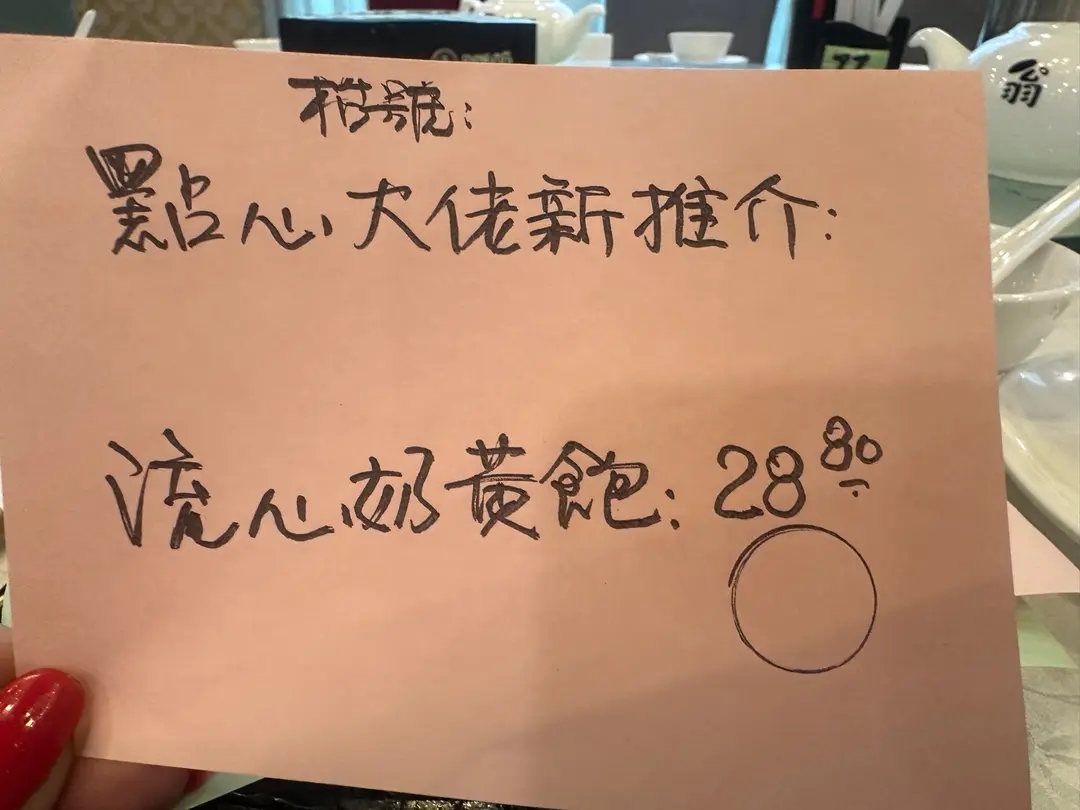 枱號:
點心大佬新推介:
流心奶黃飽: 28 80
翁
77